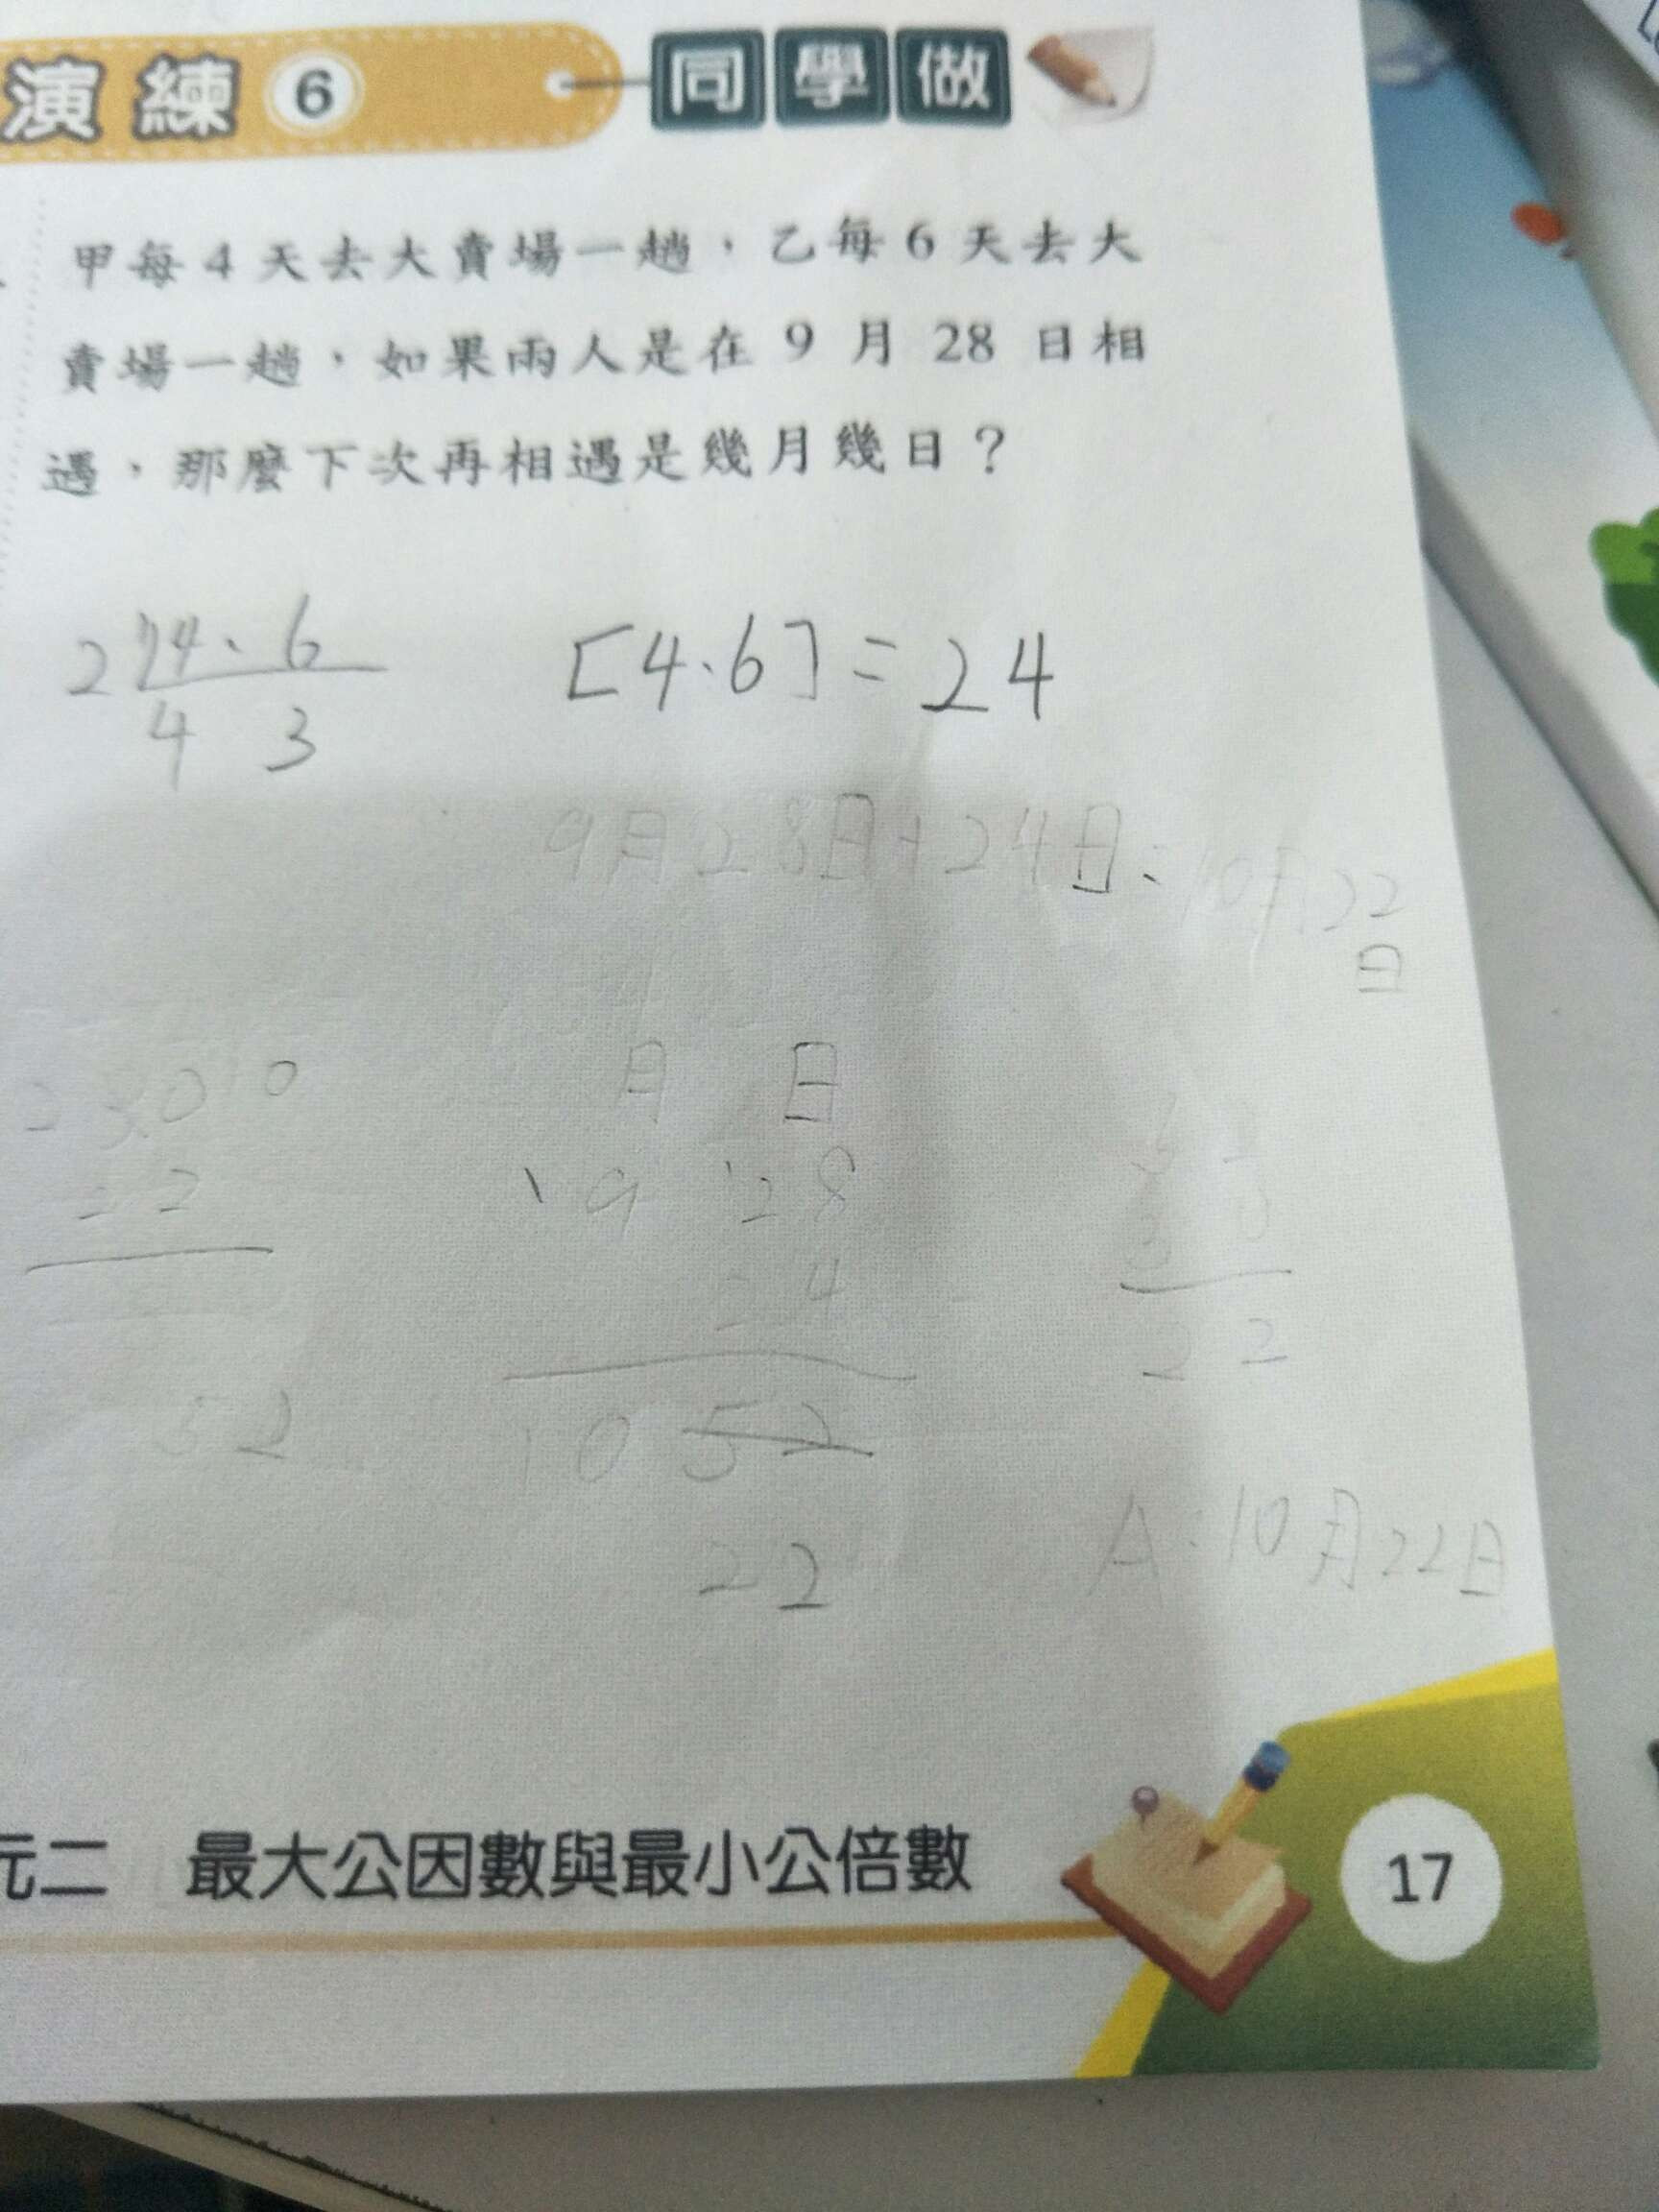 演練 6 同學做
甲每4天去大賣場一趟，乙每6天去大
賣場一趟，如果兩人是在9月28日相
遇，那麼下次再相遇是幾月幾日？
2 4、6 [4、6]=24
4 3
9月28日+24日=10月22
日
月 日
9 28
22
24
22
52 10 52
22
A:10月22日
元二 最大公因數與最小公倍數
17